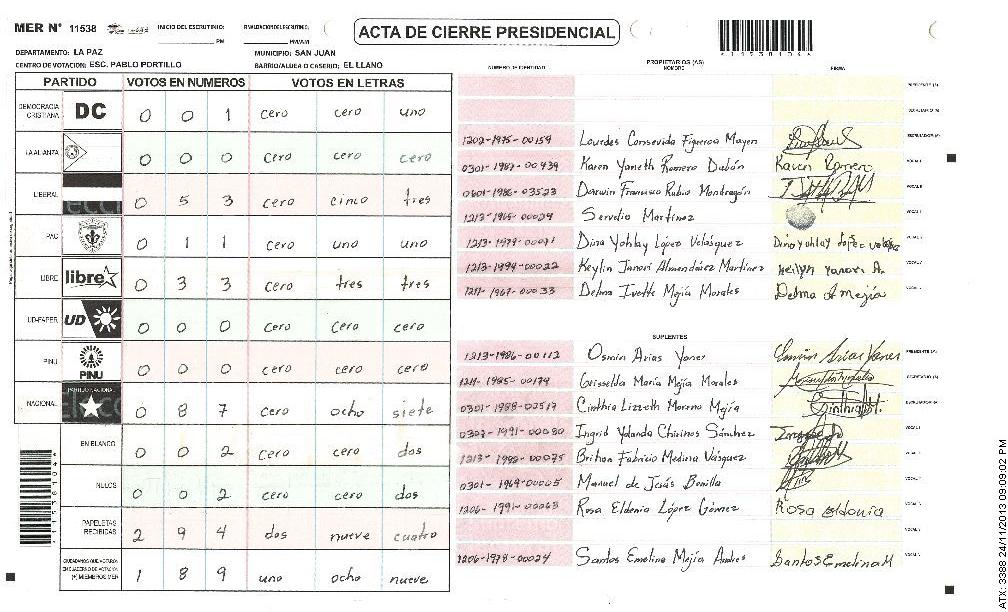 MER N° 11538
INICIO DEL ESCRUTINIO:
PM
FINALIZACION DEL ESCRUTINIO:
PM/AM
ACTA DE CIERRE PRESIDENCIAL
DEPARTAMENTO: LA PAZ
MUNICIPIO: SAN JUAN
CENTRO DE VOTACION: ESC. PABLO PORTILLO
BARRIO/ALDEA O CASERIO: EL LLANO
PARTIDO VOTOS EN NUMEROS VOTOS EN LETRAS
DEMOCRACIA CRISTIANA DC 0 0 1 cero cero uno
LA ALIANZA 0 0 0 cero cero cero
LIBERAL 0 5 3 cero cinco tres
PAC 0 1 1 cero uno uno
LIBRE libre 0 3 3 cero tres tres
UD-FAPER UD 0 0 0 cero cero cero
PINU PINU 0 0 0 cero cero cero
NACIONAL PARTIDO NACIONAL 0 8 7 cero ocho siete
EN BLANCO 0 0 2 cero cero dos
NULOS 0 0 2 cero cero dos
PAPELETAS RECIBIDAS 2 9 4 dos nueve cuatro
1 8 9 uno ocho nueve
NUMERO DE IDENTIDAD
PROPIETARIOS (AS)
NOMBRE
FIRMA
1202-1975-00159 Lourdes Figueroa
0301-1987-00439 Karen Yaneth Romero Dubón Karen Romero
0601-1986-03523 Darwin Francisco Rubio Mondragón
1213-1965-00029 Servelio Martinez
1213-1979-00071 Dina Yohlay López Velásquez
1213-1994-00022 Keylin Janori Almendárez Martínez
1211-1967-00033 Delma Ivette Mejía Morales Delma A mejía
SUPLENTES
1213-1986-00112 Osmin Arias Yanes
1211-1985-00179 Grisselda María Mejía Morales
0301-1988-00517 Cinthia Lizzeth Moreno Mejía
Ingrid Yolanda Chirinos Sánchez
1213-1982-00075 Fabricio Medina Vásquez
0301-1969-00005 Manuel de Jesús Bonilla
1206-1991-00063 Rosa Eldenia López Gómez
1206-1978-00024 Santos Emelina Mejía Santos Emelina M
ATX: 3388 24/11/2013 09:09:02 PM